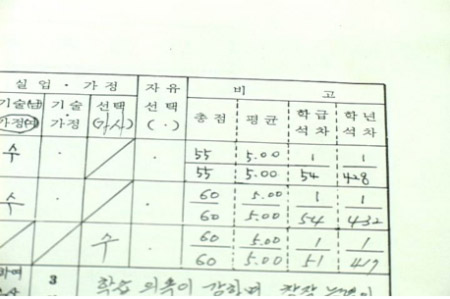 실업·가정 자유 비 고
기술(남) 기술 선택 선택 총점 평균 학급 학년
가정(여) ·가정 (가사) (·) 석차 석차
수 · · 55 5.00 1 1
55 5.00 54 428
수 · · 60 5.00 1 1
60 5.00 54 432
수 · 60 5.00 1 1
60 5.00 51 417
하여 3 학습 의욕이 강하며